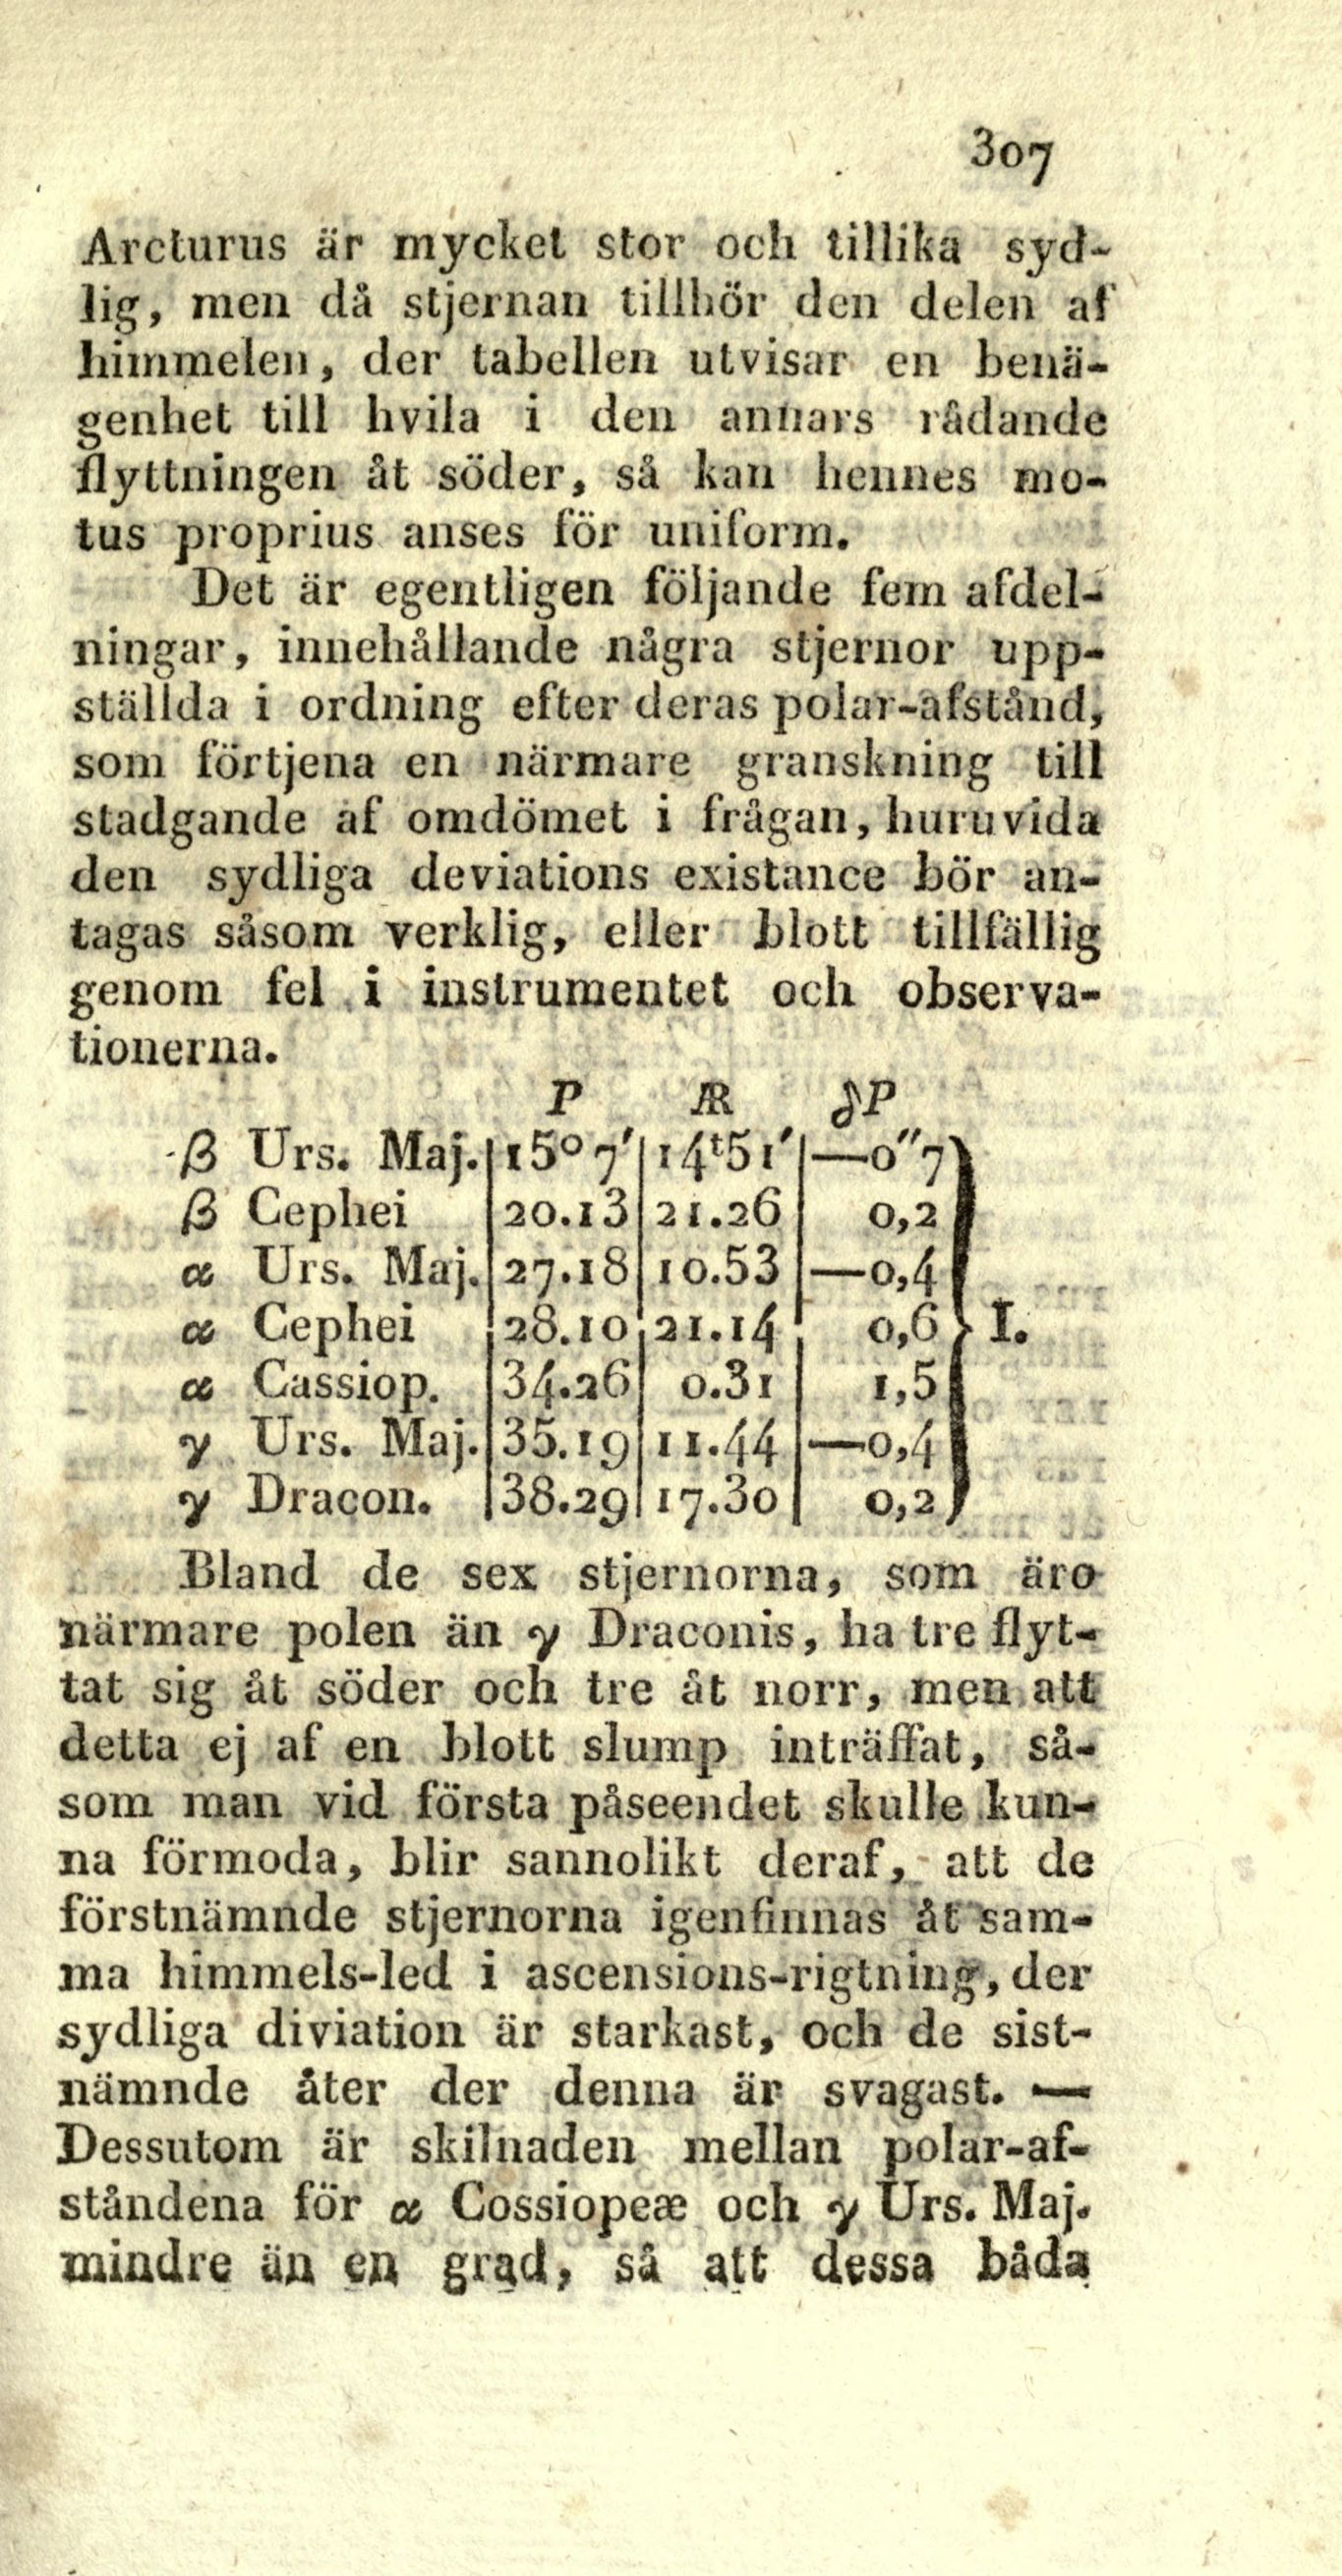 307
Arcturus är mycket stor och tillika syd-
lig, men då stjernan tillhör den delen af
himmelen, der tabellen utvisar en benä-
genhet till hvila i den annars rådande
flyttningen åt söder, så kan hennes mo-
tus proprius anses för uniform.
Det är egentligen följande fem afdel-
ningar, innehållande några stjernor upp-
ställda i ordning efter deras polar-afstånd,
som förtjena en närmare granskning till
stadgande af omdömet i frågan, huruvida
den sydliga deviations existance bör an-
tagas såsom verklig, eller blott tillfällig
genom fel i instrumentet och observa-
tionerna.
P ÆR δP
β Urs. Maj. 15° 7′ 14ᵗ51′ —0″7
β Cephei 20.13 21.26 0,2
α Urs. Maj. 27.18 10.53 —0,4
α Cephei 28.10 21.14 0,6 } I.
α Cassiop. 34.26 0.31 1,5
γ Urs. Maj. 35.19 11.44 —0,4
γ Dracon. 38.29 17.30 0,2
Bland de sex stjernorna, som äro
närmare polen än γ Draconis, ha tre flyt-
tat sig åt söder och tre åt norr, men att
detta ej af en blott slump inträffat, så-
som man vid första påseendet skulle kun-
na förmoda, blir sannolikt deraf, att de
förstnämnde stjernorna igenfinnas åt sam-
ma himmels-led i ascensions-rigtning, der
sydliga diviation är starkast, och de sist-
nämnde åter der denna är svagast. —
Dessutom är skilnaden mellan polar-af-
stånden­a för α Cossiopeæ och γ Urs. Maj.
mindre än en grad, så att dessa båda